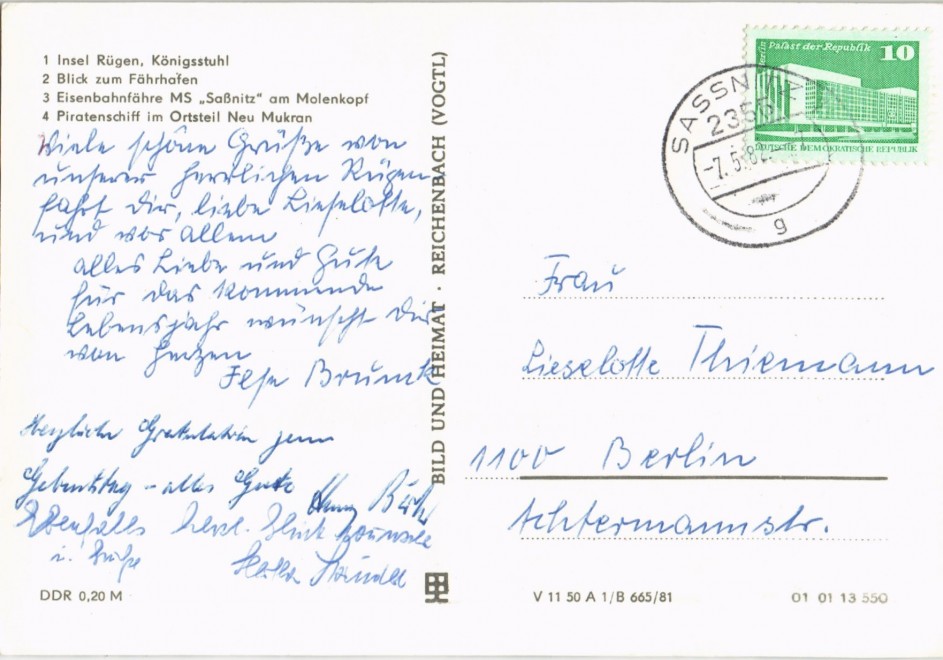 1 Insel Rügen, Königsstuhl
2 Blick zum Fährhafen
3 Eisenbahnfähre MS „Saßnitz" am Molenkopf
4 Piratenschiff im Ortsteil Neu Mukran
Viele schöne Grüße von
unserer herrlichen Rügen
fahrt Dir, liebe Lieselotte,
und vor allem
alles Liebe und Gute
für das kommende
Lebensjahr wünscht Dir
von Herzen
Ilse
Herzliche Gratulation zum
Geburtstag - alles Gute
Ebenfalls herzl. Glückwünsche
u. Grüße
DDR 0,20 M
BILD UND HEIMAT · REICHENBACH (VOGTL)
Berlin Palast der Republik 10
DEUTSCHE DEMOKRATISCHE REPUBLIK
SASSNITZ
2355
-7.5.82
g
Frau
Lieselotte Thiemann
1100 Berlin
Achtermannstr.
V 11 50 A 1/B 665/81
01 01 13 550